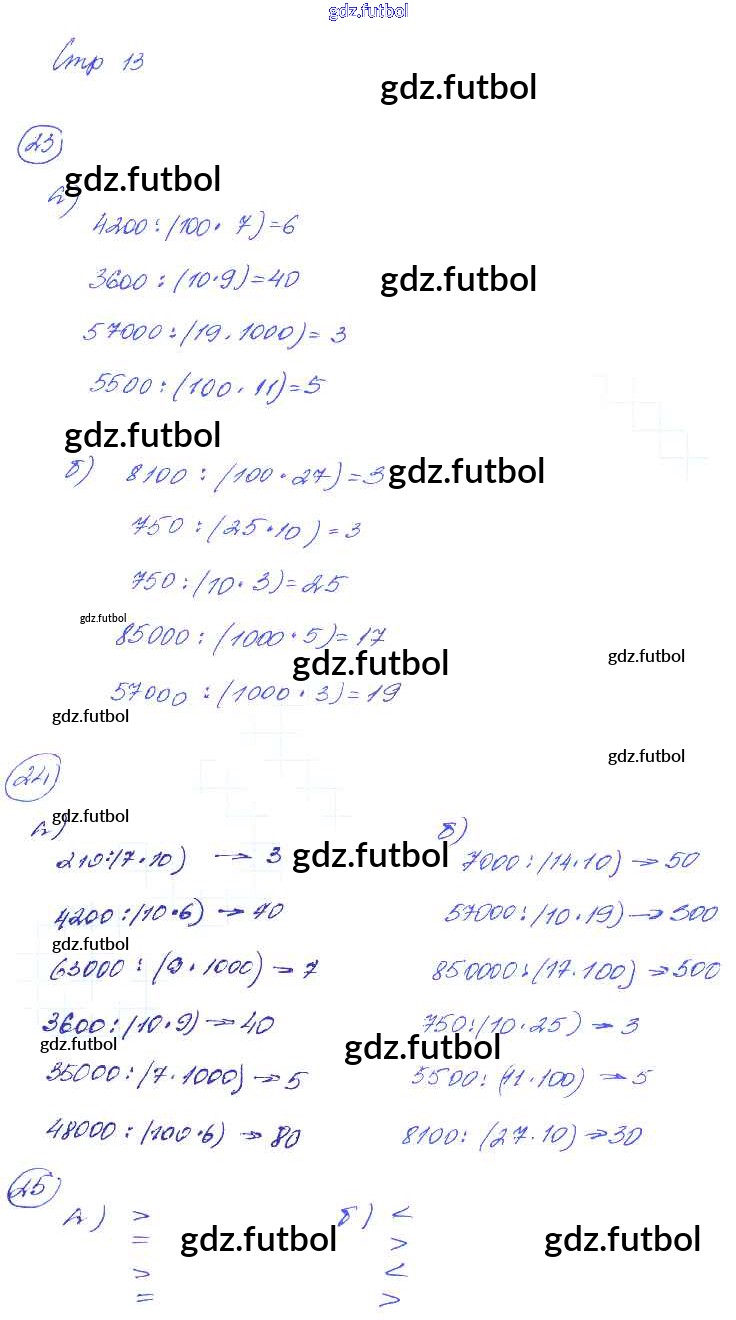 gdz.futbol
Стр 13
gdz.futbol
23
gdz.futbol
а)
4200:(100· 7)=6
3600:(10·9)=40
gdz.futbol
57000:(19·1000)=3
5500:(100·11)=5
gdz.futbol
б) 8100:(100·27)=3
gdz.futbol
750:(25·10)=3
750:(10·3)=25
gdz.futbol
85000:(1000·5)=17
gdz.futbol
gdz.futbol
57000:(1000·3)=19
gdz.futbol
gdz.futbol
24
gdz.futbol
а) б)
210:(7·10) → 3
gdz.futbol
7000:(14·10)→50
4200:(10·6)→70
57000:(10·19)→300
gdz.futbol
63000:(9·1000)→7
850000:(17·100)→500
3600:(10·9)→40
750:(10·25)→3
gdz.futbol
gdz.futbol
35000:(7·1000)→5
5500:(11·100)→5
48000:(100·6)→80
8100:(27·10)→30
25
а) > б) <
= gdz.futbol > gdz.futbol
> <
= >